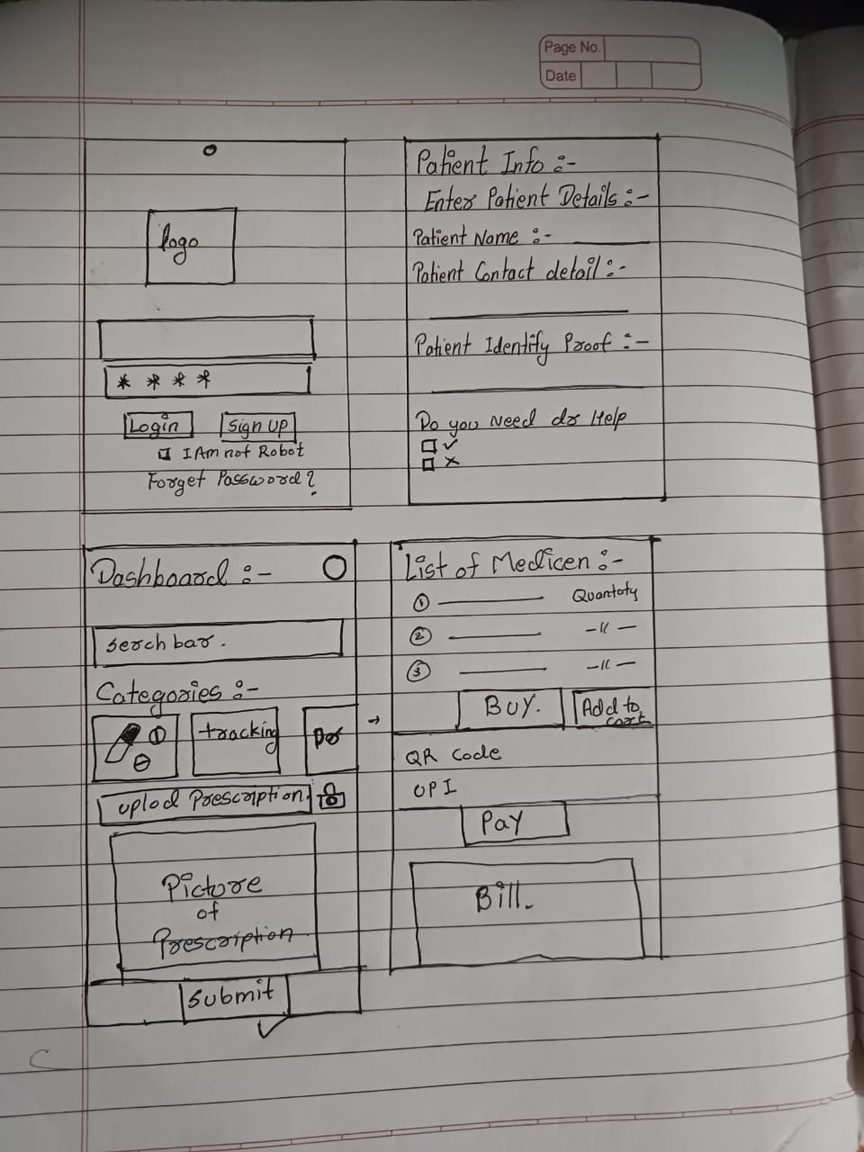 Page No.
Date
logo
* * * *
Login
Sign up
I Am not Robot
Forget Password?
Patient Info :-
Enter Patient Details :-
Patient Name :-
Patient Contact detail :-
Patient Identify Proof :-
Do you Need dr Help
Dashboard :-
Serch bar.
Categories :-
tracking
Dr
uplod Prescription
Picture
of
Prescription
Submit
List of Medicen :-
① Quantaty
② -॥-
③ -॥-
BUY.
Add to
cart
QR code
UPI
Pay
Bill.